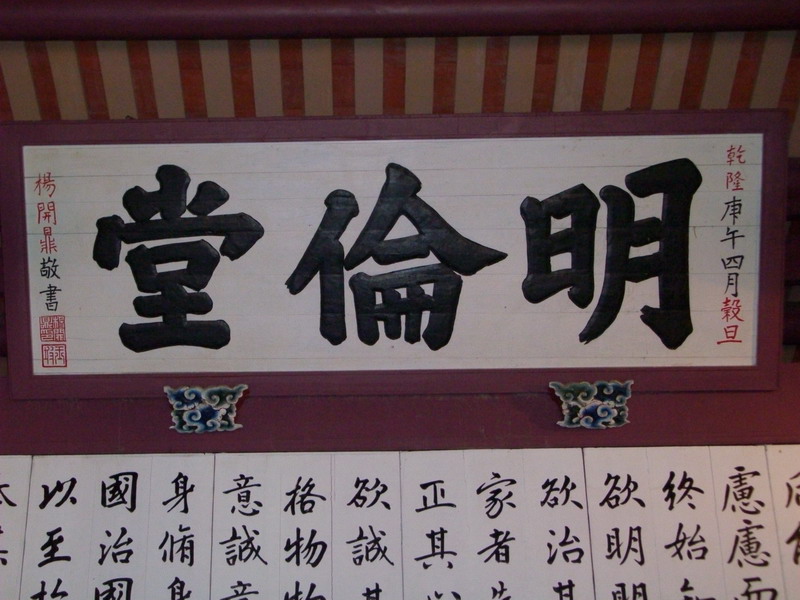 乾隆庚午四月穀旦
明倫堂
楊開鼎敬書
慮慮而
終始
欲明明
欲治其
家者先
正其心
欲誠其
格物物
意誠意
身脩身
國治國
以至於